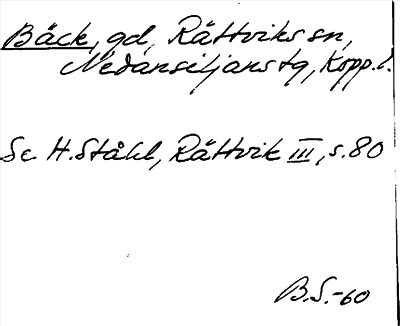 Bäck, gd, Rättviks sn,
Nedansiljans tg, Kopp.l.
Se H. Ståhl, Rättvik III, s. 80
B.S.-60